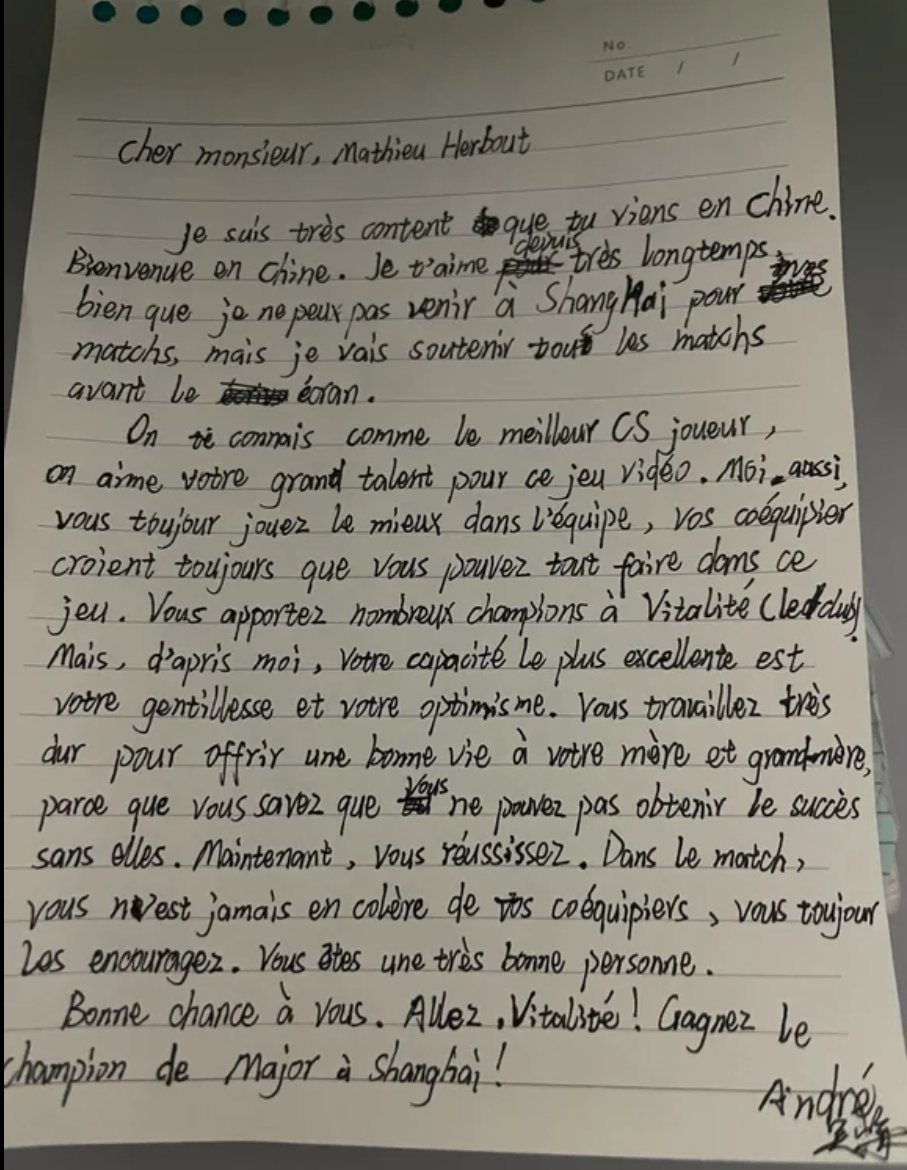 No.
DATE / /
Cher monsieur, Mathieu Herbout
Je suis très content que tu viens en Chine.
Bienvenue en Chine. Je t'aime depuis très longtemps,
bien que je ne peux pas venir à ShangHai pour
matchs, mais je vais soutenir tout les matchs
avant le écran.
On te connais comme le meilleur CS joueur,
on aime votre grand talent pour ce jeu vidéo. Moi aussi,
vous toujour jouez le mieux dans l'équipe, vos coéquipier
croient toujours que vous pouvez tout faire dans ce
jeu. Vous apportez nombreux champions à Vitalité (le club)
Mais, d'apris moi, votre capacité le plus excellente est
votre gentillesse et votre optimisme. Vous travaillez très
dur pour offrir une bonne vie à votre mère et grand-mère,
parce que vous savez que vous ne pouvez pas obtenir le succès
sans elles. Maintenant, vous réussissez. Dans le match,
vous n'est jamais en colère de vos coéquipiers, vous toujour
les encouragez. Vous êtes une très bonne personne.
Bonne chance à vous. Allez, Vitalité! Gagnez le
champion de Major à Shanghai!
André